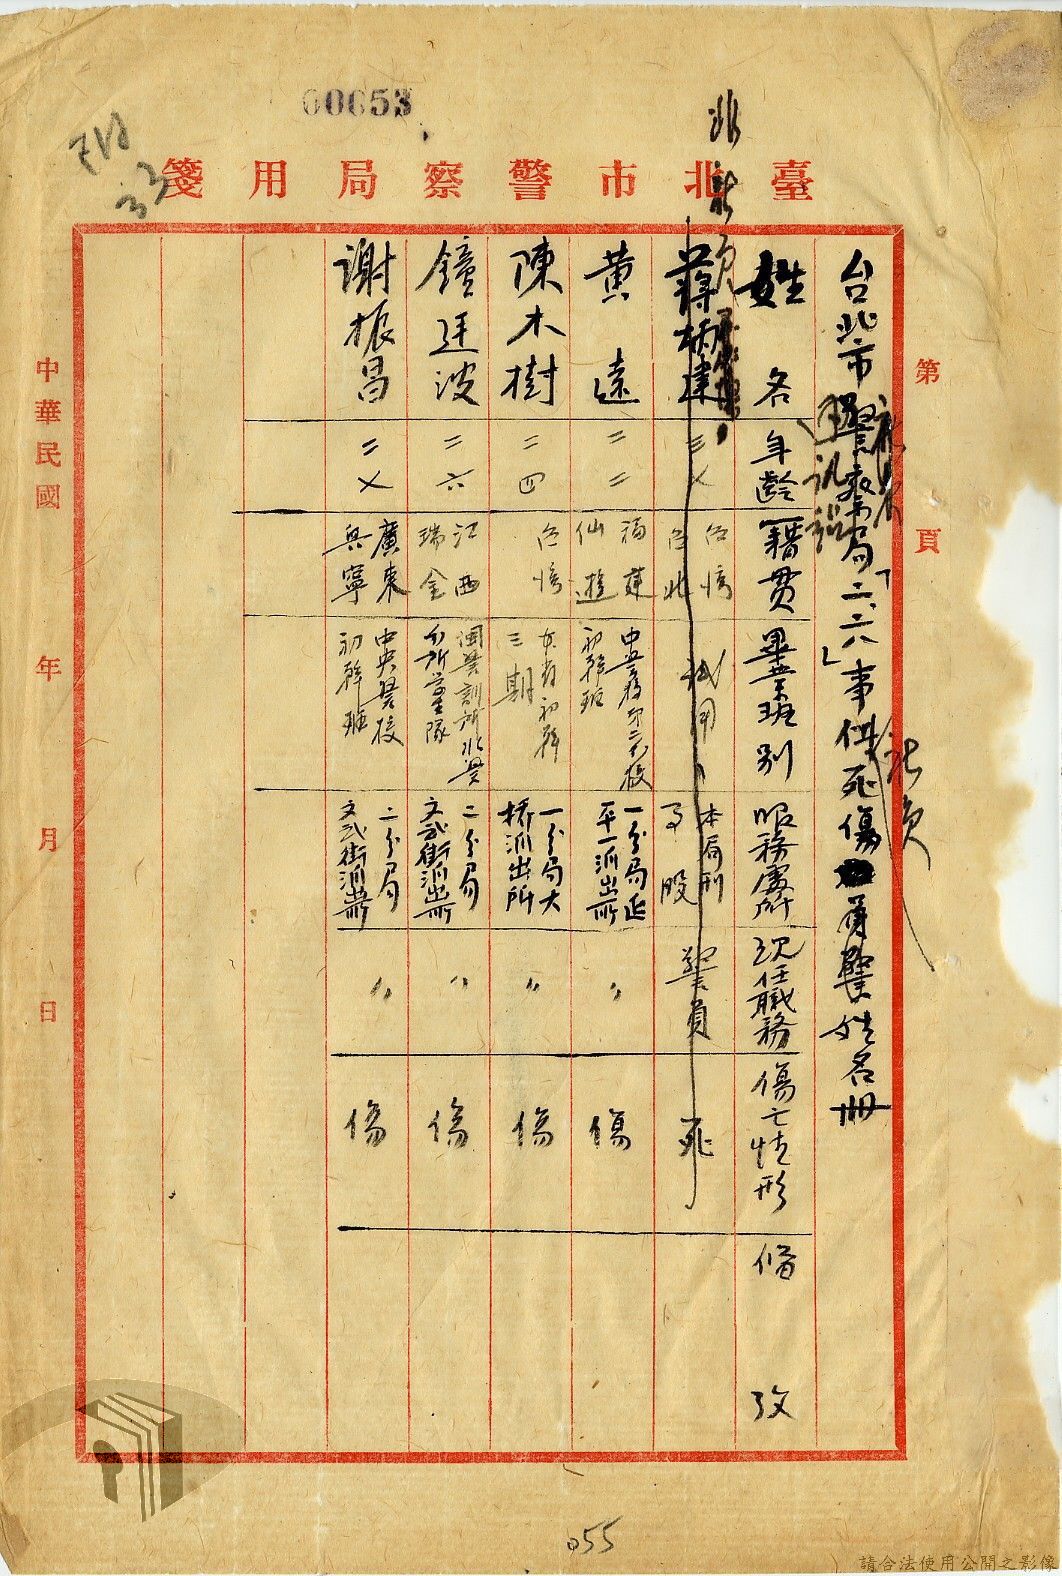 00653
臺北市警察局用箋
第 頁
台北市警察局「二、六八」事件死傷員警姓名冊
姓名 年齡 籍貫 畢業班別 服務處所 現任職務 傷亡情形 備攷
三〤 台灣台北 試用 本局刑事股 警員 死
黃遠 二二 福建仙遊 初幹班 一分局延平一派出所 〃 傷
陳木樹 二四 台灣 初幹三期 一分局大橋派出所 〃 傷
鐘廷波 二六 江西瑞金 二分局文武街派出所 〃 傷
謝振昌 二〤 廣東興寧 中央警校初幹班 二分局文武街派出所 〃 傷
中華民國 年 月 日
055
請合法使用公開之影像